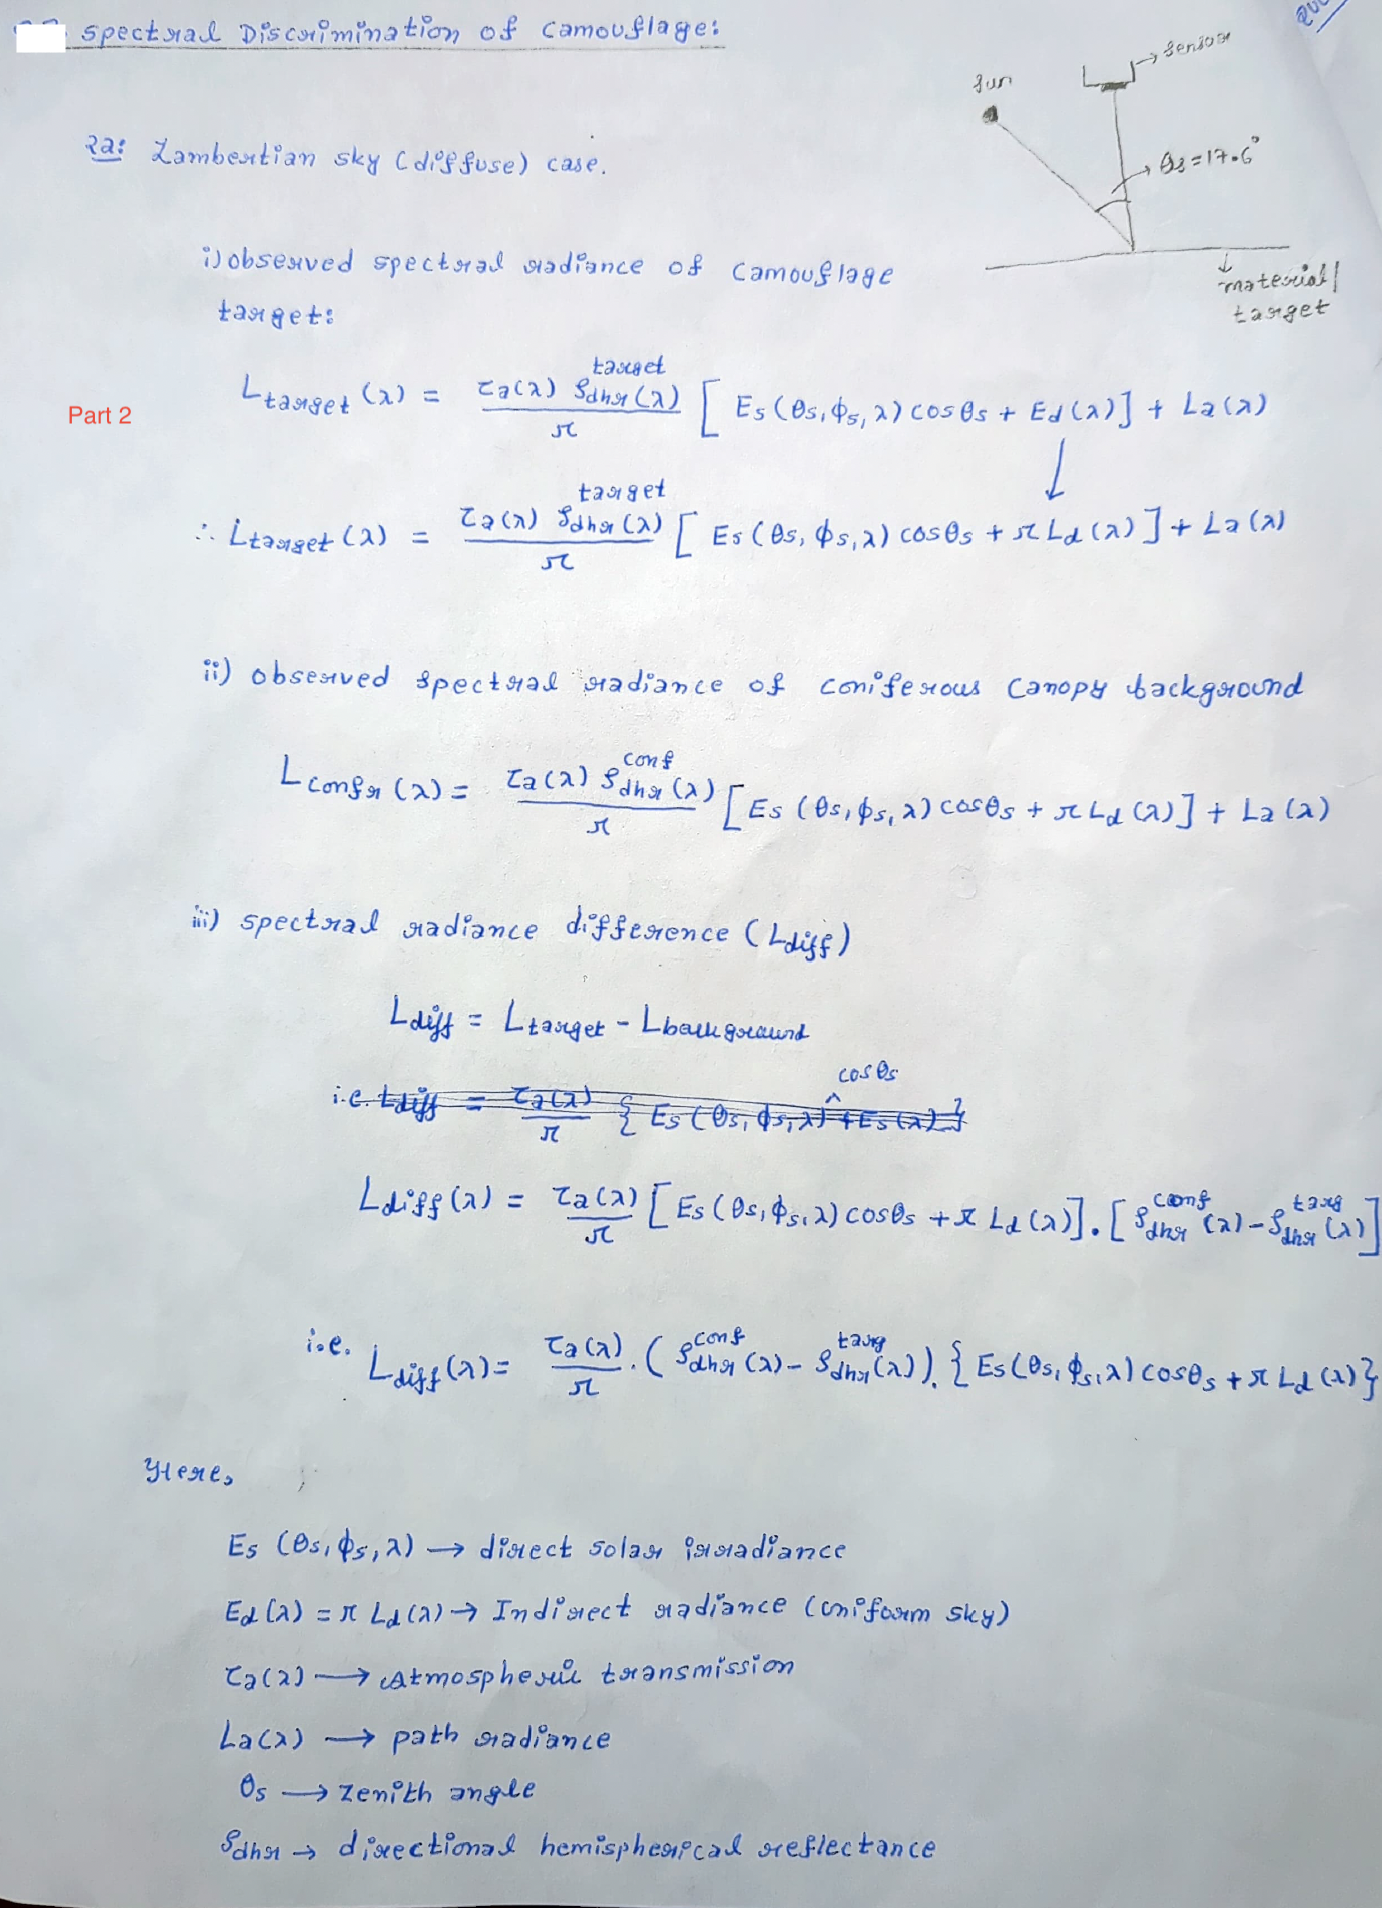 Spectral Discrimination of Camouflage:
Sun
→ Sensor
→ θs = 17.6°
↓
material/
target
2a: Lambertian sky (diffuse) case.
i) observed spectral radiance of camouflage
target:
Part 2
L_target (λ) = τa(λ) ρ_dhr^target (λ) / π [ Es (θs, ϕs, λ) cosθs + Ed (λ) ] + La (λ)
∴ L_target (λ) = τa(λ) ρ_dhr^target (λ) / π [ Es (θs, ϕs, λ) cosθs + π Ld (λ) ] + La (λ)
ii) observed spectral radiance of coniferous canopy background
L_confr (λ) = τa(λ) ρ_dhr^conf (λ) / π [ Es (θs, ϕs, λ) cosθs + π Ld (λ) ] + La (λ)
iii) spectral radiance difference (L_diff)
L_diff = L_target - L_background
cosθs
i.e. L_diff = τa(λ) / π { Es (θs, ϕs, λ) ^ + Es (λ) }
L_diff (λ) = τa(λ) / π [ Es (θs, ϕs, λ) cosθs + π Ld (λ) ] . [ ρ_dhr^conf (λ) - ρ_dhr^targ (λ) ]
i.e. L_diff (λ) = τa(λ) / π . ( ρ_dhr^conf (λ) - ρ_dhr^targ (λ) ) . { Es (θs, ϕs, λ) cosθs + π Ld (λ) }
Here,
Es (θs, ϕs, λ) → direct solar irradiance
Ed (λ) = π Ld (λ) → Indirect radiance (uniform sky)
τa(λ) → Atmospheric transmission
La(λ) → path radiance
θs → zenith angle
ρdhr → directional hemispherical reflectance